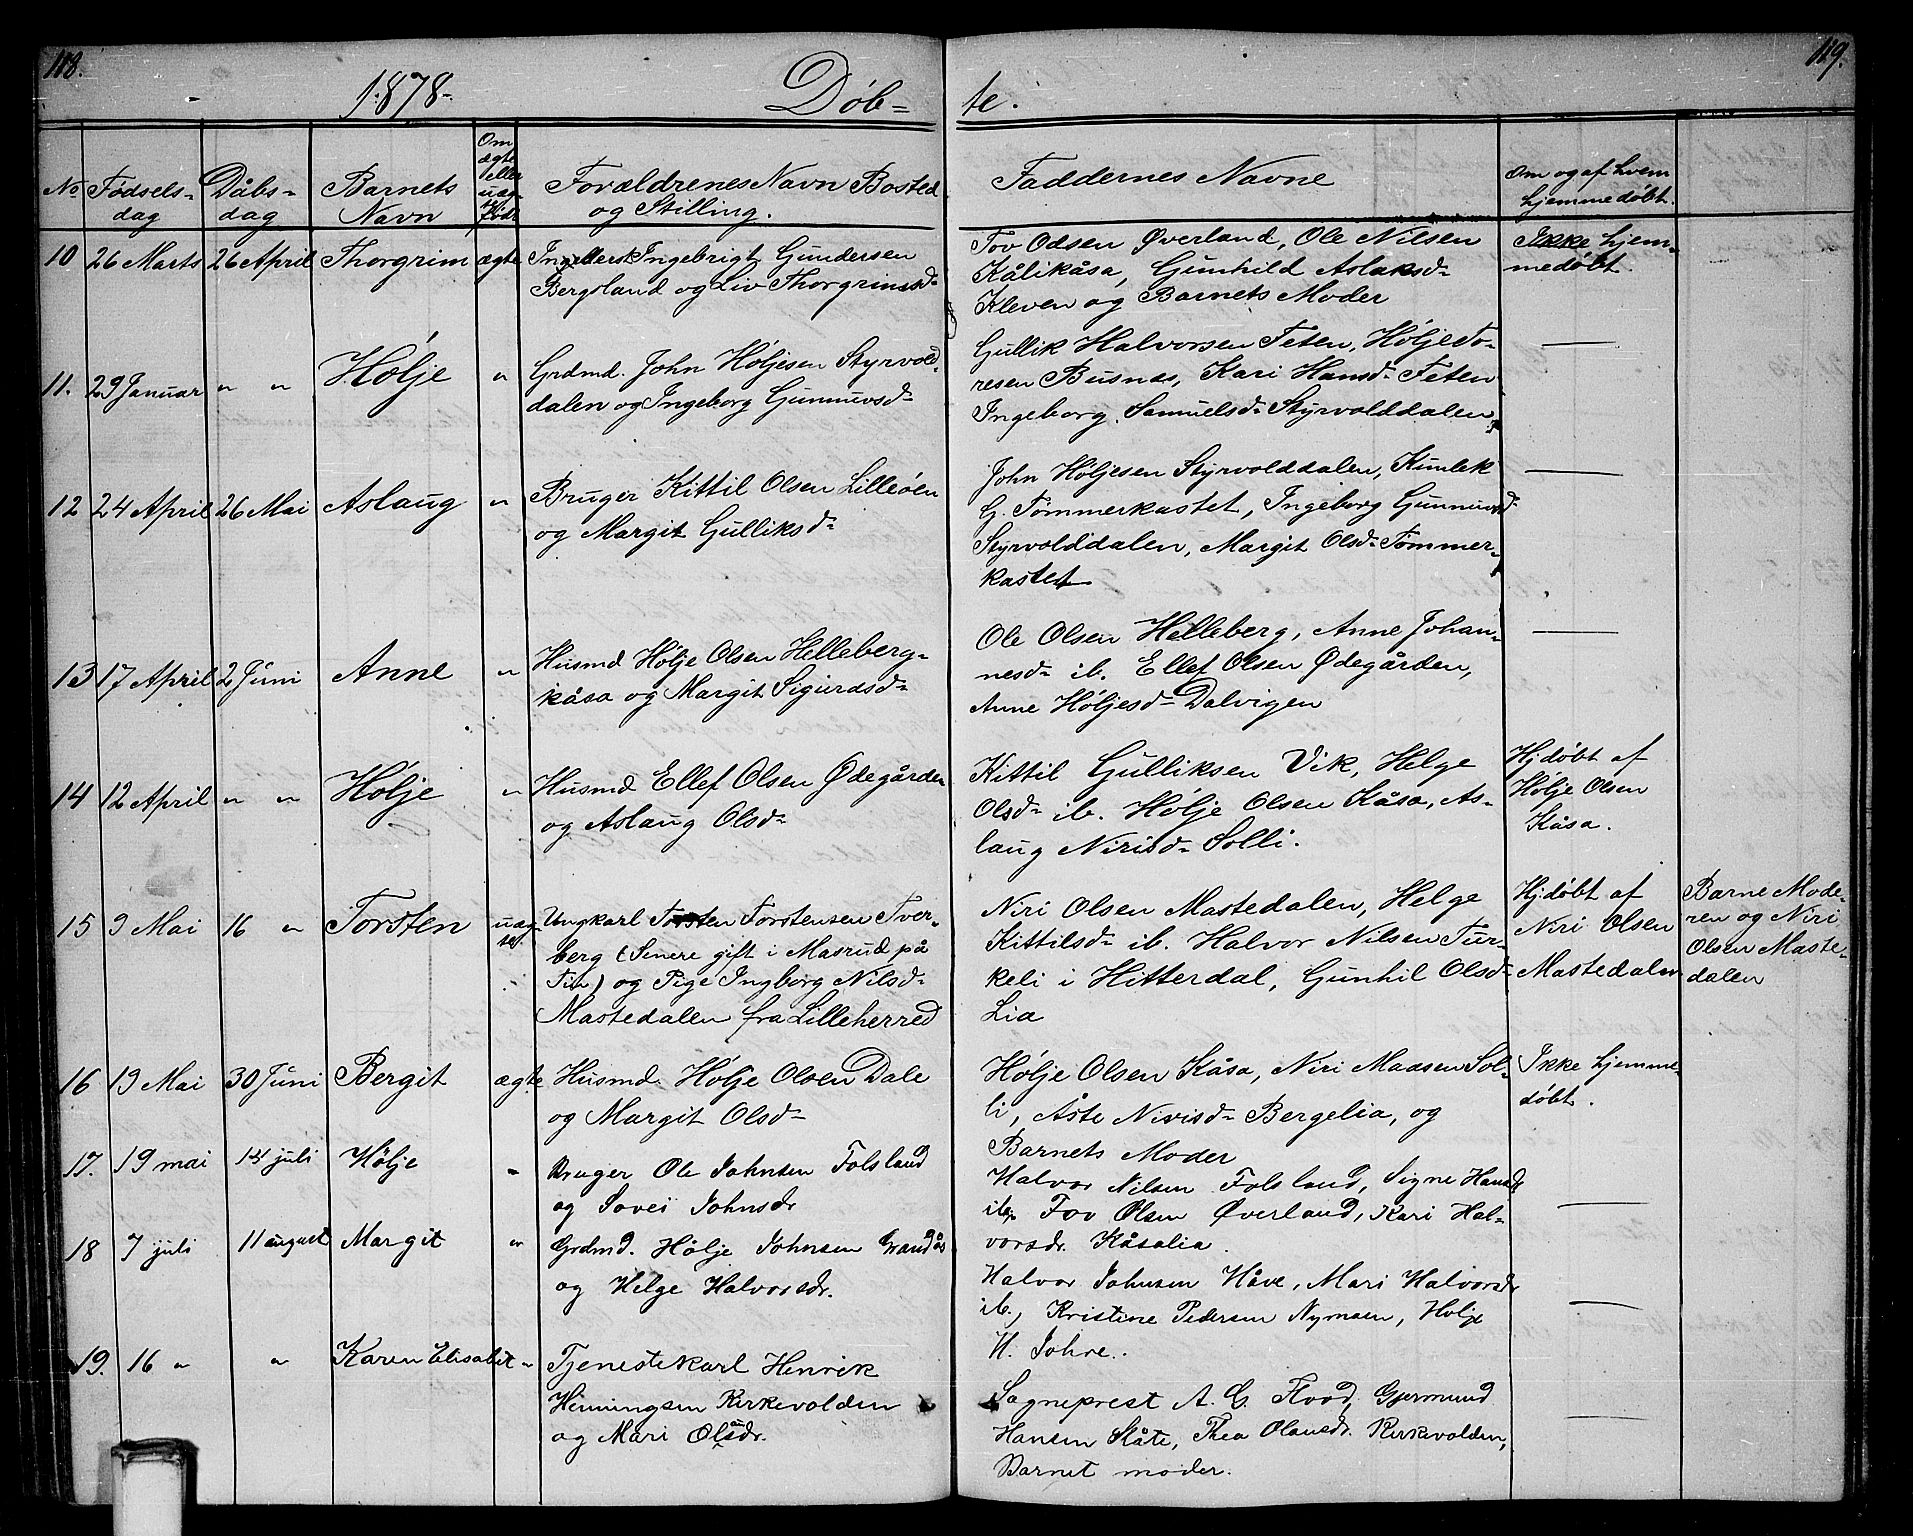 118.
119.
1878.
Døb-
te.
No
Fødsels-
dag
Dåbs-
dag
Barnets
Navn
Om
ægte
eller
uæg-
te
født
Forældrenes Navn Bosted
og Stilling.
Faddernes Navne
Om og af hvem
hjemmedøbt.
10 26 Marts 26 April Thorgrim ægte
Ingebrigt Gundersen
Bergsland og Liv Thorgrimsd-
Tov Odsen Øverland, Ole Nilsen
Kålikåsa, Gunhild Aslaksd-
Kleven og Barnets Moder
Ikke hjem-
medøbt.
11. 29 Januar " " Hølje "
Grdmd. John Høljesen Styrvold-
dalen og Ingeborg Gunnuvsd-
Gullik Halvorsen Teten, Høljesto-
resen Busnes, Kari Hansd- Teten
Ingeborg Samuelsd- Styrvolddalen
—
12 24 April 26 Mai Aslaug "
Bruger Kittil Olsen Lilleøen
og Margit Gulliksd-
John Høljesen Styrvolddalen, Kumlek
G. Tømmerkastet, Ingeborg Gunnuvsd-
Styrvolddalen, Margit Olsd- Tømmer-
kastet
—
13 17 April 2 Juni Anne "
Husmd Hølje Olsen Helleberg-
kåsa og Margit Sigurdsd-
Ole Olsen Helleberg, Anne Johan-
nesd- ib. Ellef Olsen Ødegården,
Anne Høljesd- Dalvigen
—
14 12 April " " Hølje "
Husmd Ellef Olsen Ødegården
og Aslaug Olsd-
Kittil Gulliksen Vik, Helge
Olsd- ib. Hølje Olsen Kåsa, As-
laug Nirisd- Solli.
Hjdøbt af
Hølje Olsen
Kåsa.
15 9 Mai 16 " Torsten uæg-
te.
Ungkarl Torsten Torstensen Tver-
berg (Senere gift i Masrud på
Tin) og Pige Ingborg Nilsd-
Mastedalen fra Lilleherred
Niri Olsen Mastedalen, Helge
Kittilsd- ib. Halvor Nilsen Tur-
keli i Hitterdal, Gunhil Olsd-
Lia
Hjdøbt af
Niri Olsen
Mastedalen
Barne Mode-
ren og Niri
Olsen Maste-
dalen
16 19 Mai 30 Juni Bergit ægte
Husmd. Hølje Olsen Dale
og Margit Olsd-
Hølje Olsen Kåsa, Niri Madsen Sol-
li, Åste Nirisd- Bergelia, og
Barnets Moder
Ikke hjemme-
døbt.
17. 19 mai 14 juli Hölje "
Bruger Ole Johnsen Folsland
og Sovei Johnsdr
Halvor Nilsen Folsland, Signe Hansdr
ib, Tov Olsen Øverland, Kari Hal-
vorsdr. Kåsalia.
—
18 7 juli 11 august Margit "
Grdmd. Hölje Johnsen Grandås
og Helge Halvorsdr.
Halvor Johnsen Håve, Mari Halvorsdr
ib, Kristine Pedersen Nymoen, Holje
H. Johre.
—
19. 16 " " Karen Elisabet "
Tjenestekarl Henrik
Henningsen Kirkevolden
og Mari Olsdr.
Sogneprest A. G. Flood, Gjermund
Hansen Skåte, Thea Olausdr. Kirkevolden,
Barnet moder.
—